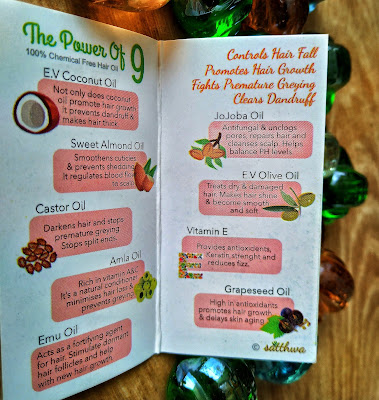 The Power Of 9
100% Chemical Free Hair Oil
E.V Coconut Oil
Not only does coconut
oil promote hair growth
It prevents dandruff &
makes hair thick.
Sweet Almond Oil
Smoothens cuticles
& prevents shedding
It regulates blood flow
to scalp
Castor Oil
Darkens hair and stops
premature greying
Stops split ends.
Amla Oil
Rich in vitamin A&C
It's a natural conditioner
minimises hair loss &
prevents greying.
Emu Oil
Acts as a fortifying agent
for hair. Stimulate dorment
hair follicles and help
with new hair growth.
Controls Hair Fall
Promotes Hair Growth
Fights Premature Greying
Clears Dandruff
JoJoba Oil
Antifungal & unclogs
pores, repairs hair and
cleanses scalp. Helps
balance PH levels.
E.V Olive Oil
Treats dry & damaged
hair. Makes hair shine
& become smooth
and soft
Vitamin E
Provides antioxidents,
Keratin strenght and
reduces fizz.
Grapeseed Oil
High in antioxidants
promotes hair growth
& delays skin aging
© satthwa